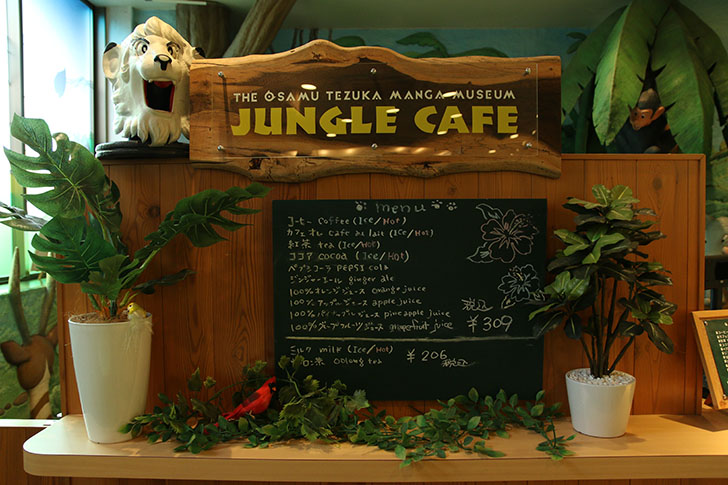 THE OSAMU TEZUKA MANGA MUSEUM
JUNGLE CAFE
menu
コーヒー coffee (Ice/Hot)
カフェオレ cafe au lait (Ice/Hot)
紅茶 tea (Ice/Hot)
ココア cocoa (Ice/Hot)
ペプシコーラ PEPSI cola
ジンジャーエール ginger ale
100%オレンジジュース orange juice
100%アップルジュース apple juice
100%パイナップルジュース pine apple juice
100%グレープフルーツジュース grapefruit juice
税込
¥309
ミルク milk (Ice/Hot)
ウーロン茶 Oolong tea
¥206
税込